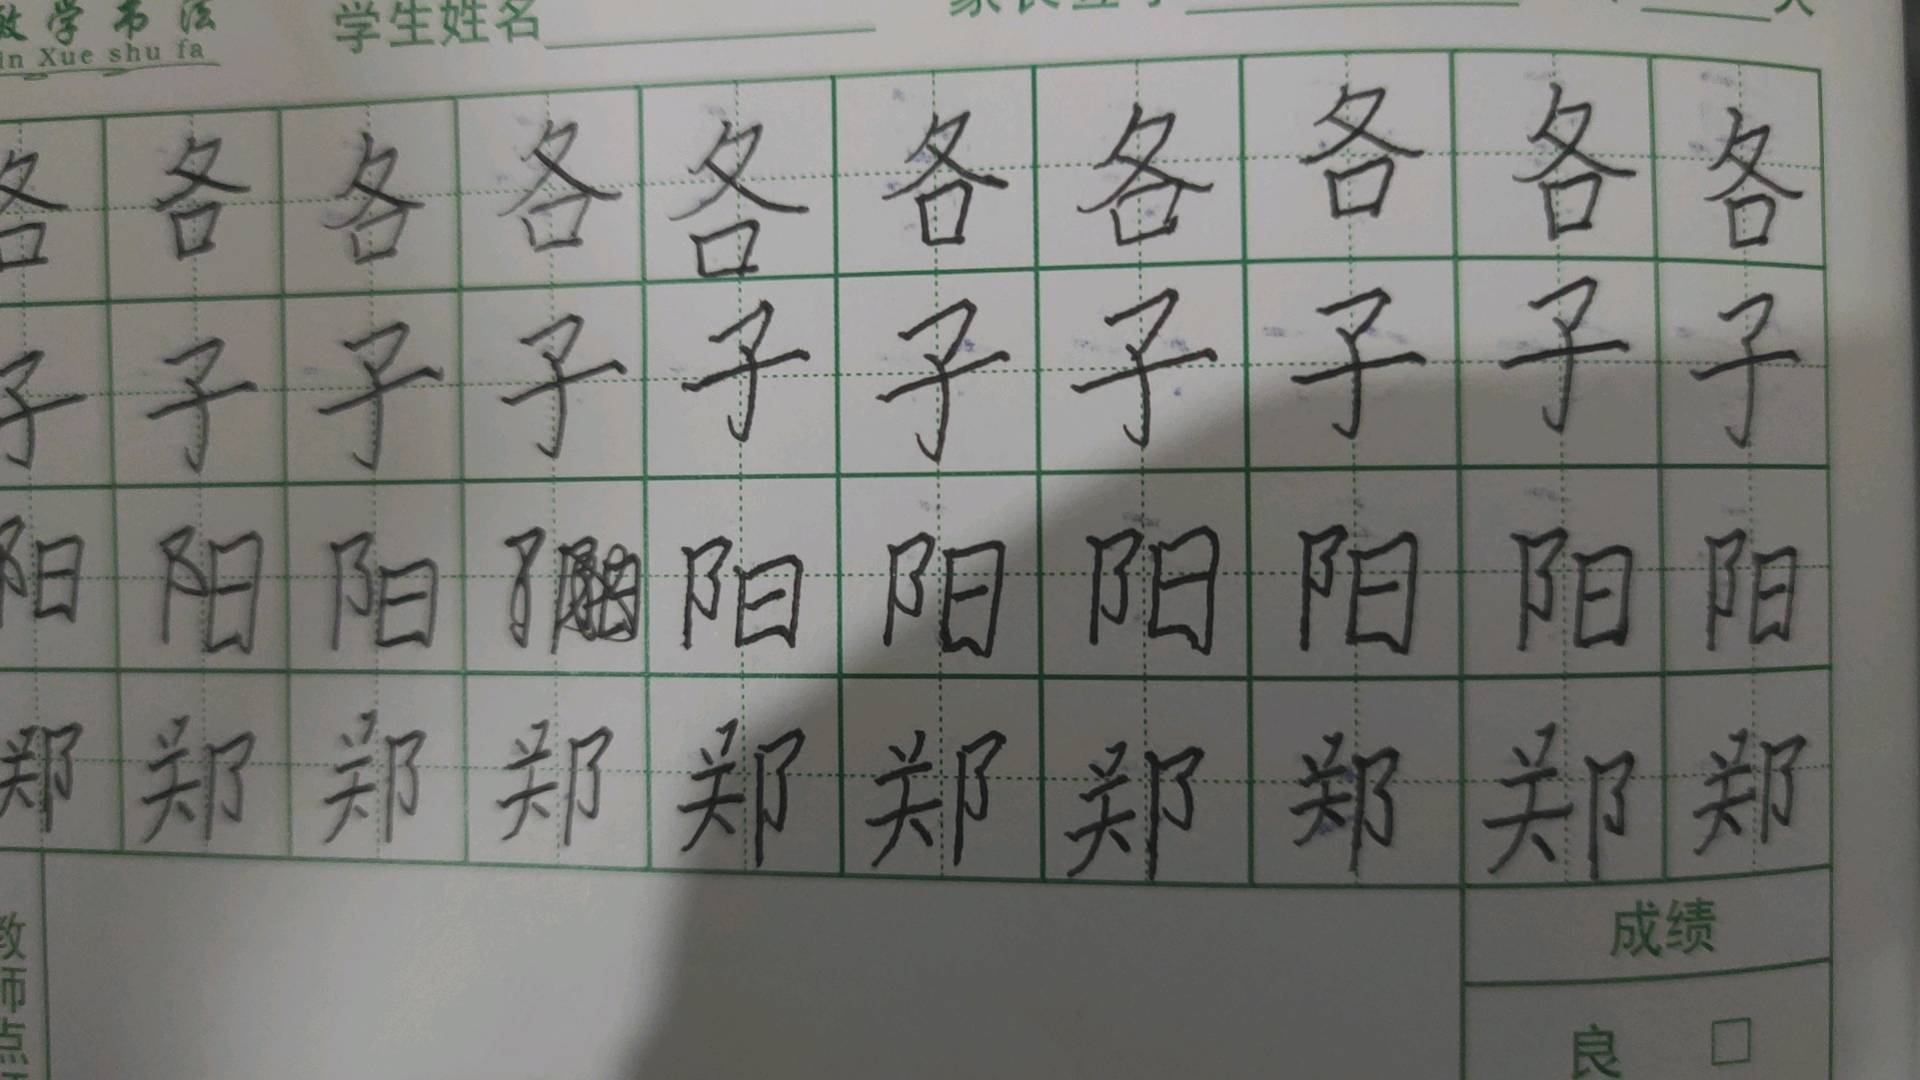 教学书法 学生姓名
in Xue shu fa
各 各 各 各 各 各 各 各 各 各
子 子 子 子 子 子 子 子 子 子
阳 阳 阳 阳 阳 阳 阳 阳 阳
郑 郑 郑 郑 郑 郑 郑 郑 郑 郑
教师点
成绩
良 □